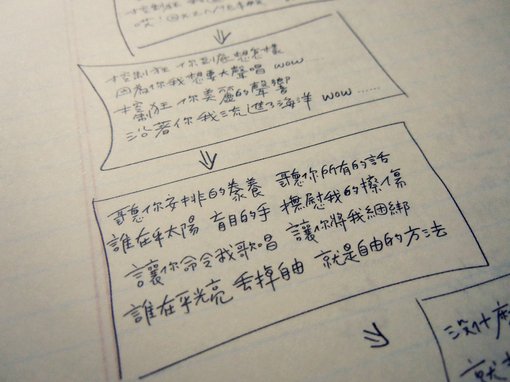 控制狂 你到底想怎樣
因為你我想要大聲唱 wow……
控制狂 你美麗的聲響
沿著你我流進了海洋 wow……
聽你安排的豢養 聽你所有的話
誰在乎太陽 盲目的手 撫慰我的擦傷
讓你命令我歌唱 讓你將我綑綁
誰在乎光亮 丟掉自由 就是自由的方法
沒什麼
就